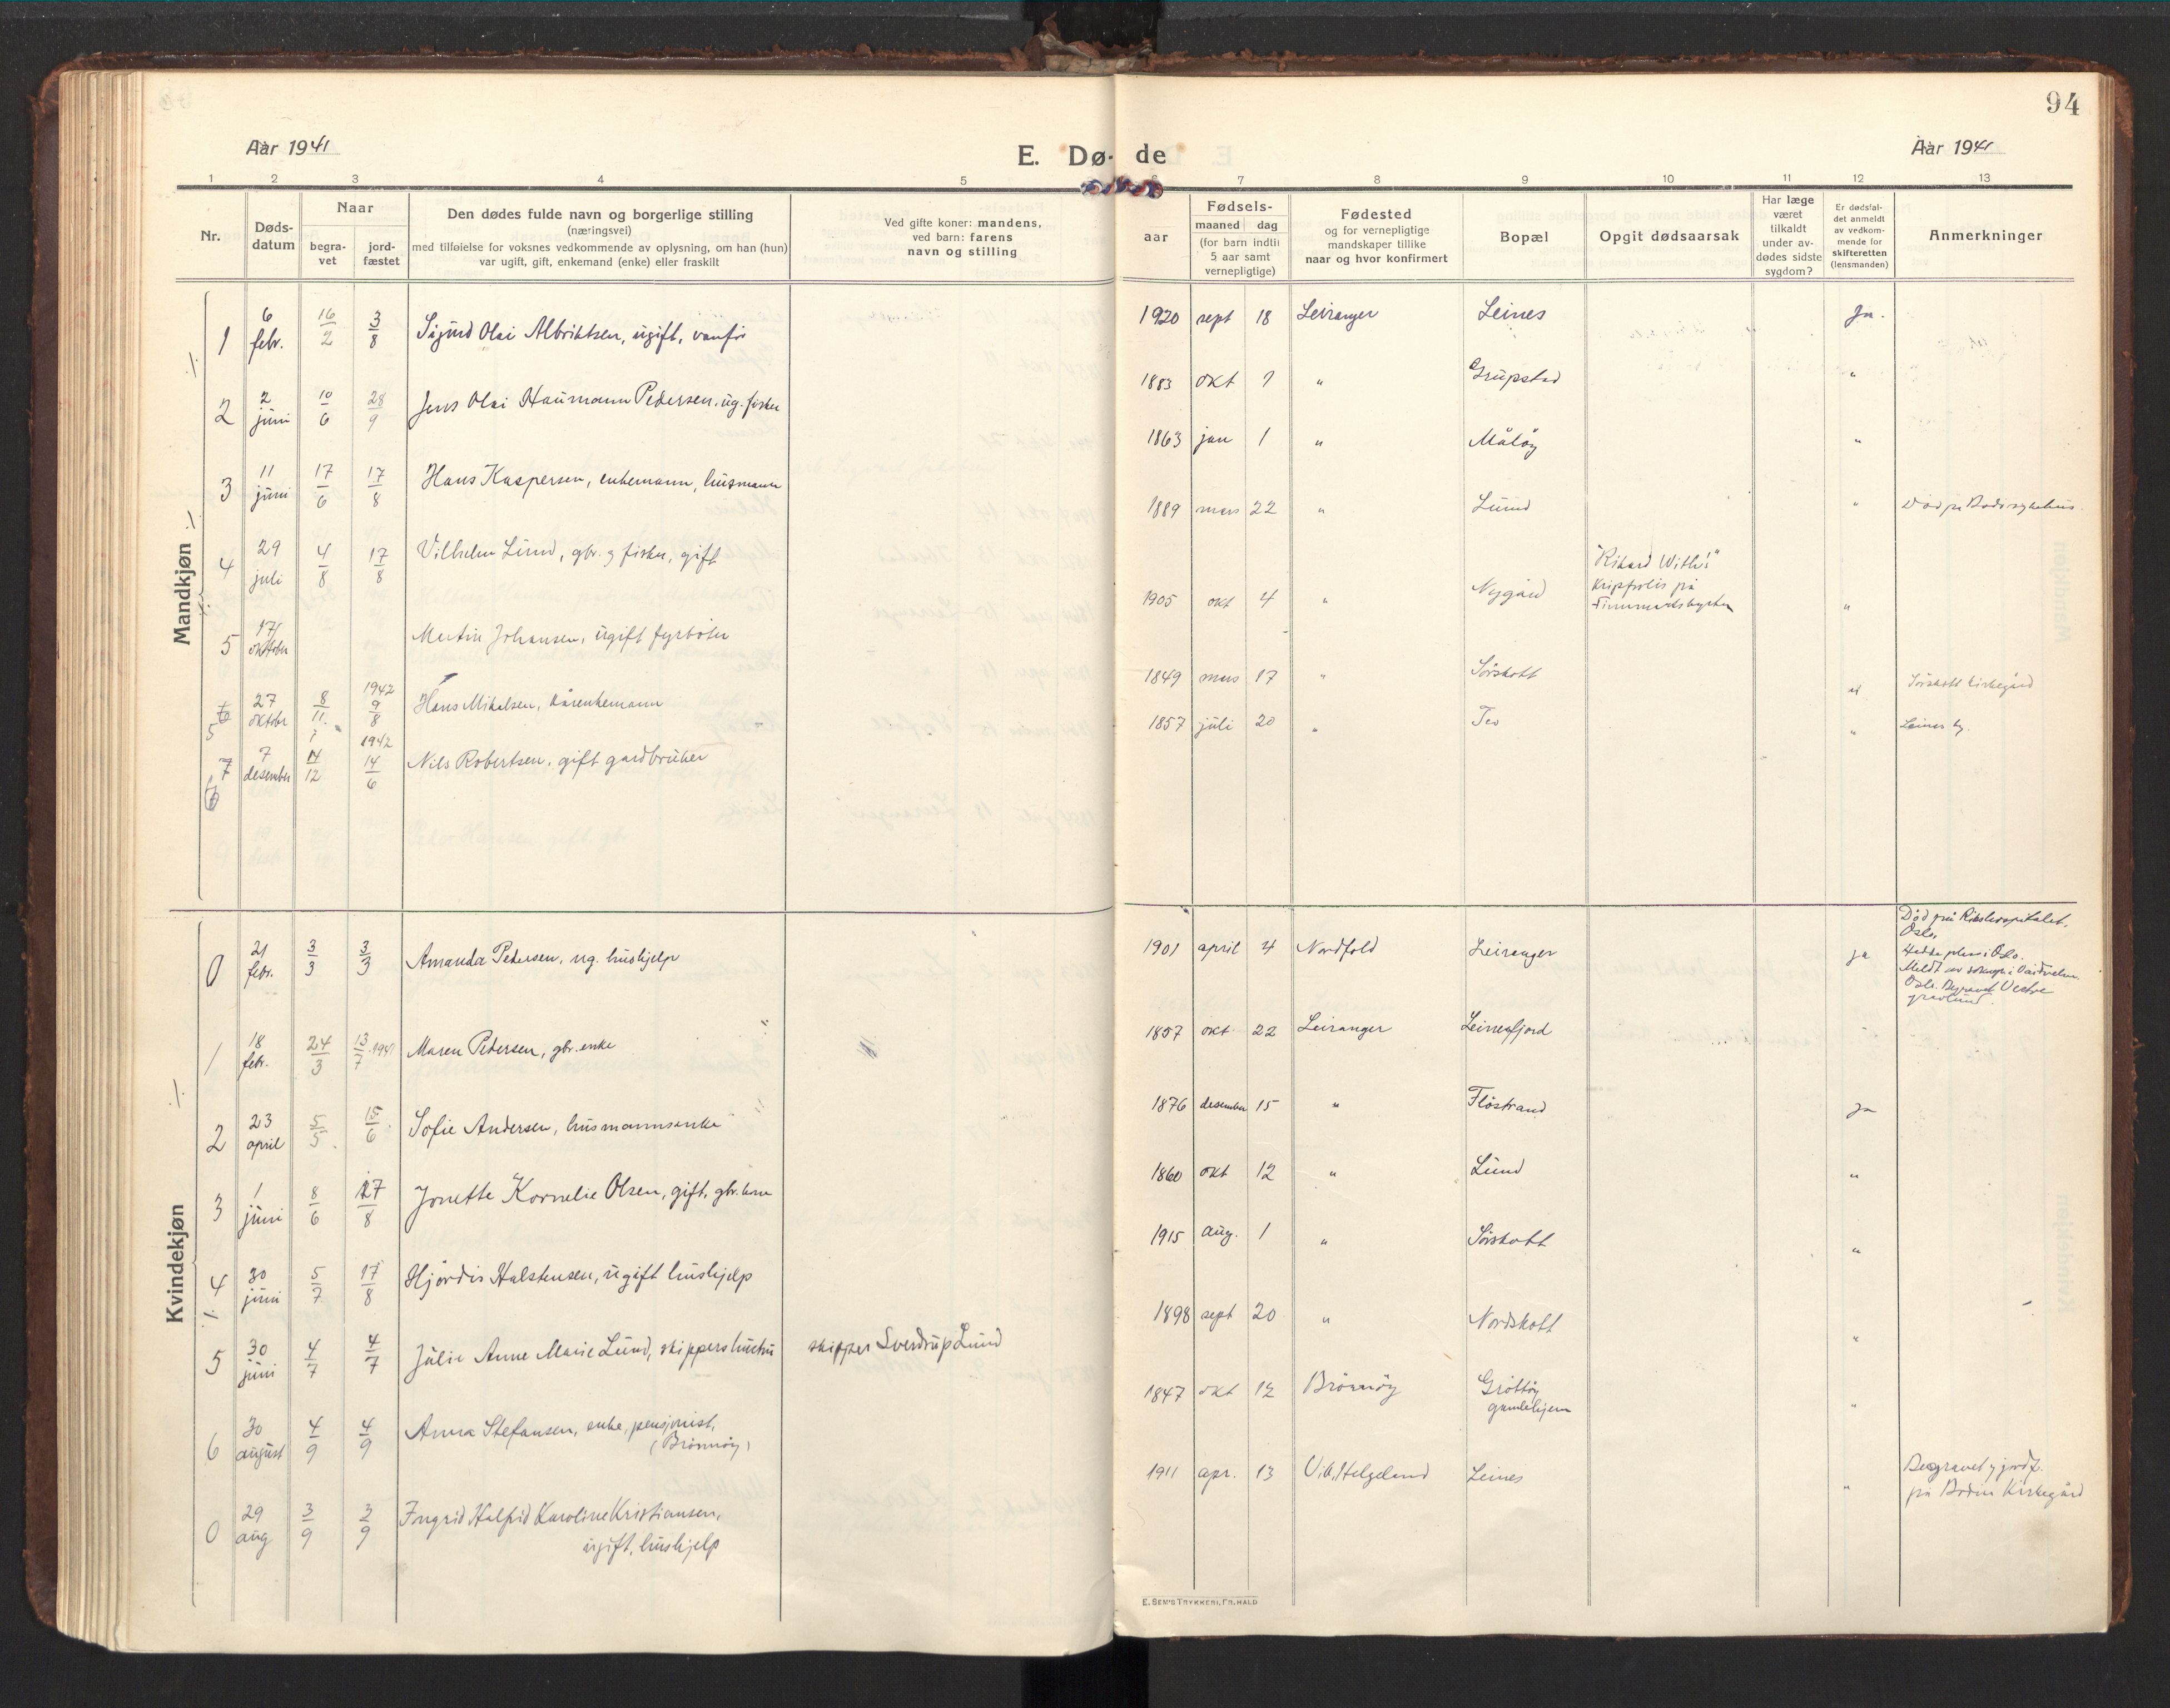 94
Aar 1941
E. Dø- de
Aar 1941
1 2 3 4 5 6 7 8 9 10 11 12 13
Nr.
Døds-
datum
Naar
begra-
vet
jord-
fæstet
Den dødes fulde navn og borgerlige stilling
(næringsvei)
med tilføielse for voksnes vedkommende av oplysning, om han (hun)
var ugift, gift, enkemand (enke) eller fraskilt
Ved gifte koner: mandens,
ved barn: farens
navn og stilling
Fødsels-
aar
maaned dag
(for barn indtil
5 aar samt
vernepligtige)
Fødested
og for vernepligtige
mandskaper tillike
naar og hvor konfirmert
Bopæl
Opgit dødsaarsak
Har læge
været
tilkaldt
under av-
dødes sidste
sygdom?
Er dødsfal-
det anmeldt
av vedkom-
mende for
skifteretten
(lensmanden)
Anmerkninger
Mandkjøn
1 6 febr. 16/2 3/8 Sigurd Olai Albriktsen, ugift, vanfør 1920 sept 18 Leiranger Leines Ja.
2 2 juni 10/6 28/9 Jens Olai Haumann Pedersen, ug. fisker 1883 okt 7 " Grupstad "
3 11 juni 17/6 17/8 Hans Kaspersen, enkemann, husmann 1863 jan 1 " Måløy "
4 29 juli 4/8 17/8 Vilhelm Lund, gbr. og fisker, gift 1889 mars 22 " Lund " Død på Bodø sykehus
5 17 oktober Martin Johansen, ugift fyrbøter 1905 okt 4 " Nygård "Rikard With's"
krigsforlis på
Finnmarkskysten "
6 5 27 oktobr 8/11 1942 9/8 Hans Mikalsen, kårenkemann 1849 mars 17 " Sørskott " Sørskott kirkegård
7 6 7 desember 14/12 1942 14/6 Nils Robertsen, gift gardbruker 1857 juli 20 " Teo " Leines kg.
Kvindekjøn
0 21 febr. 3/3 3/3 Amanda Pedersen, ug. hushjelp 1901 april 4 Nordfold Leiranger ja Død på Rikshospitalet,
Oslo.
Hadde plass i Oslo.
Meldt av soknepr. i
Oslo. Begravet Vestre
gravlund.
1 18 febr. 24/3 13/7 1941 Maren Pedersen, gbr. enke 1857 okt 22 Leiranger Leinesfjord
2 23 april 5/5 15/6 Sofie Andersen, husmannsenke 1876 desember 15 " Fløstrand ja
3 1 juni 8/6 17/8 Jonette Kornelie Olsen, gift, gbr. kone 1860 okt 12 " Lund "
4 30 juni 5/7 17/8 Hjørdis Halstensen, ugift hushjelp 1915 aug. 1 " Sørskott "
5 30 juni 4/7 4/7 Julie Anne Marie Lund, skippers hustru skipper Sverdrup Lund 1898 sept 20 " Nordskott "
6 30 august 4/9 4/9 Anna Stefansen, enke, pensjonist,
(Brønnøy) 1847 okt 12 Brønnøy Grøttøy
gamlehjem "
0 29 aug 3/9 3/9 Ingrid Halfrid Karoline Kristiansen,
ugift, hushjelp 1911 apr. 13 Vik, Helgeland Leines " Begravet og jordf.
på Bodin kirkegård
E. SEM'S TRYKKERI, FR.HALD